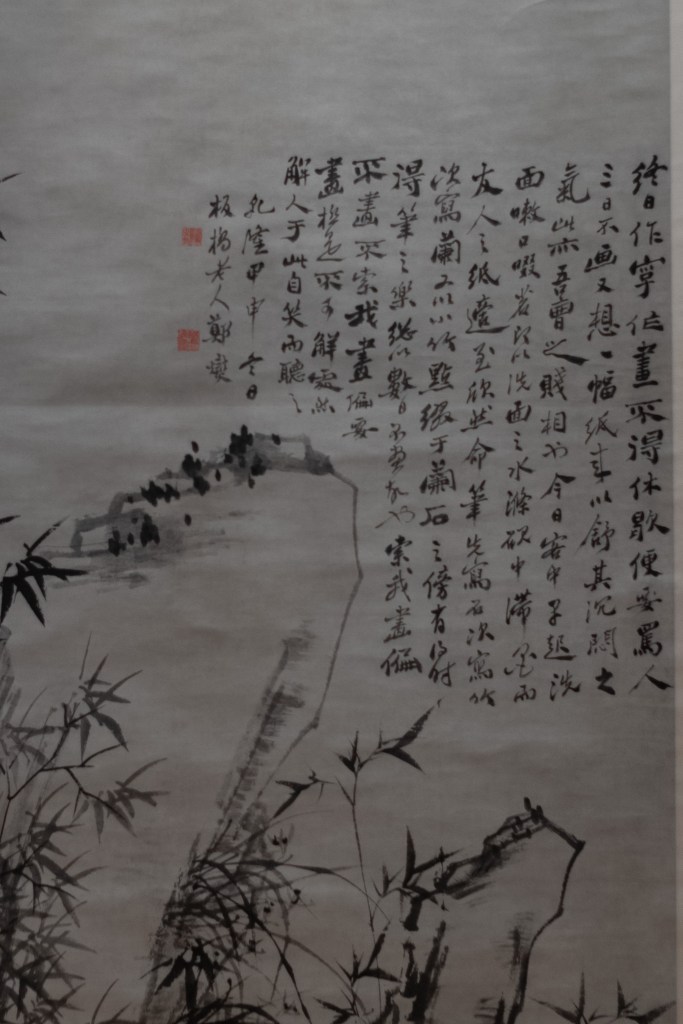 終日作字作畫不得休歇便要罵人
三日不画又想一幅紙来以舒其沉悶之
氣此亦吾曹之賤相也今日早起洗
面漱口啜茗即以洗面之水滌硯中滯墨而
友人之紙適至欣然命筆先寫石次寫竹
次寫蘭又以小竹點綴于蘭石之傍有得時
得筆之樂總以數日不畫故也索我畫偏
不畫不索我畫偏要
畫極是不可解處然
解人于此自笑而聽之
乾隆甲申冬日
板橋老人鄭燮